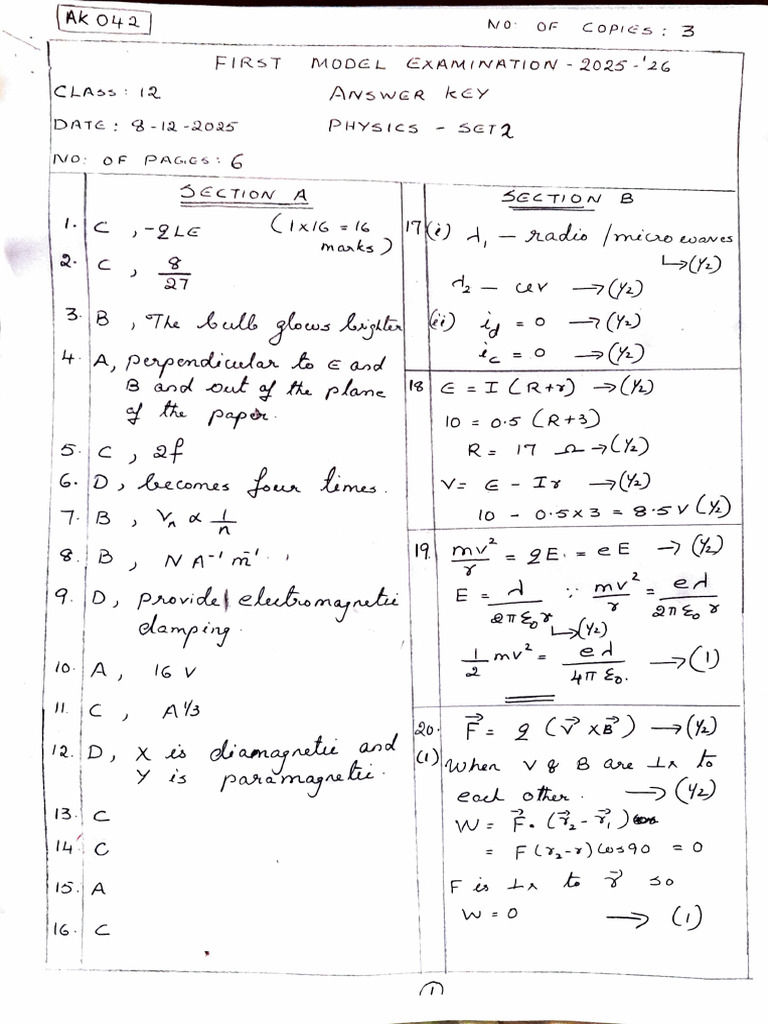 AK 042
NO: OF COPIES: 3
FIRST MODEL EXAMINATION - 2025-'26
CLASS: 12 ANSWER KEY
DATE: 8-12-2025 PHYSICS - SET 2
NO: OF PAGES: 6
SECTION A
1. C, -qLE (1x16 = 16 marks)
2. C, 8/27
3. B, The bulb glows brighter
4. A, perpendicular to E and
B and out of the plane
of the paper.
5. C, 2f
6. D, becomes four times.
7. B, Vn ∝ 1/n
8. B, N A⁻¹ m⁻¹
9. D, provide electromagnetic
damping.
10. A, 16 V
11. C, A^1/3
12. D, X is diamagnetic and
Y is paramagnetic.
13. C
14. C
15. A
16. C
SECTION B
17 (i) λ₁ - radio/microwaves
↳(½)
λ₂ - uv → (½)
(ii) i_d = 0 → (½)
i_c = 0 → (½)
18 E = I (R+r) → (½)
10 = 0.5 (R+3)
R = 17 Ω → (½)
V = E - Ir → (½)
10 - 0.5x3 = 8.5 V (½)
19. mv²/r = qE = eE → (½)
E = λ/2πε₀r ∵ mv²/r = eλ/2πε₀r
↳(½)
1/2 mv² = eλ/4πε₀. → (1)
20. F⃗ = q (V⃗ x B⃗) → (½)
(1) When V & B are ⊥r to
each other. → (½)
W = F⃗ . (r⃗₂ - r⃗₁)
= F(r₂-r) cos90 = 0
F is ⊥r to r⃗ so
W = 0 → (1)
1